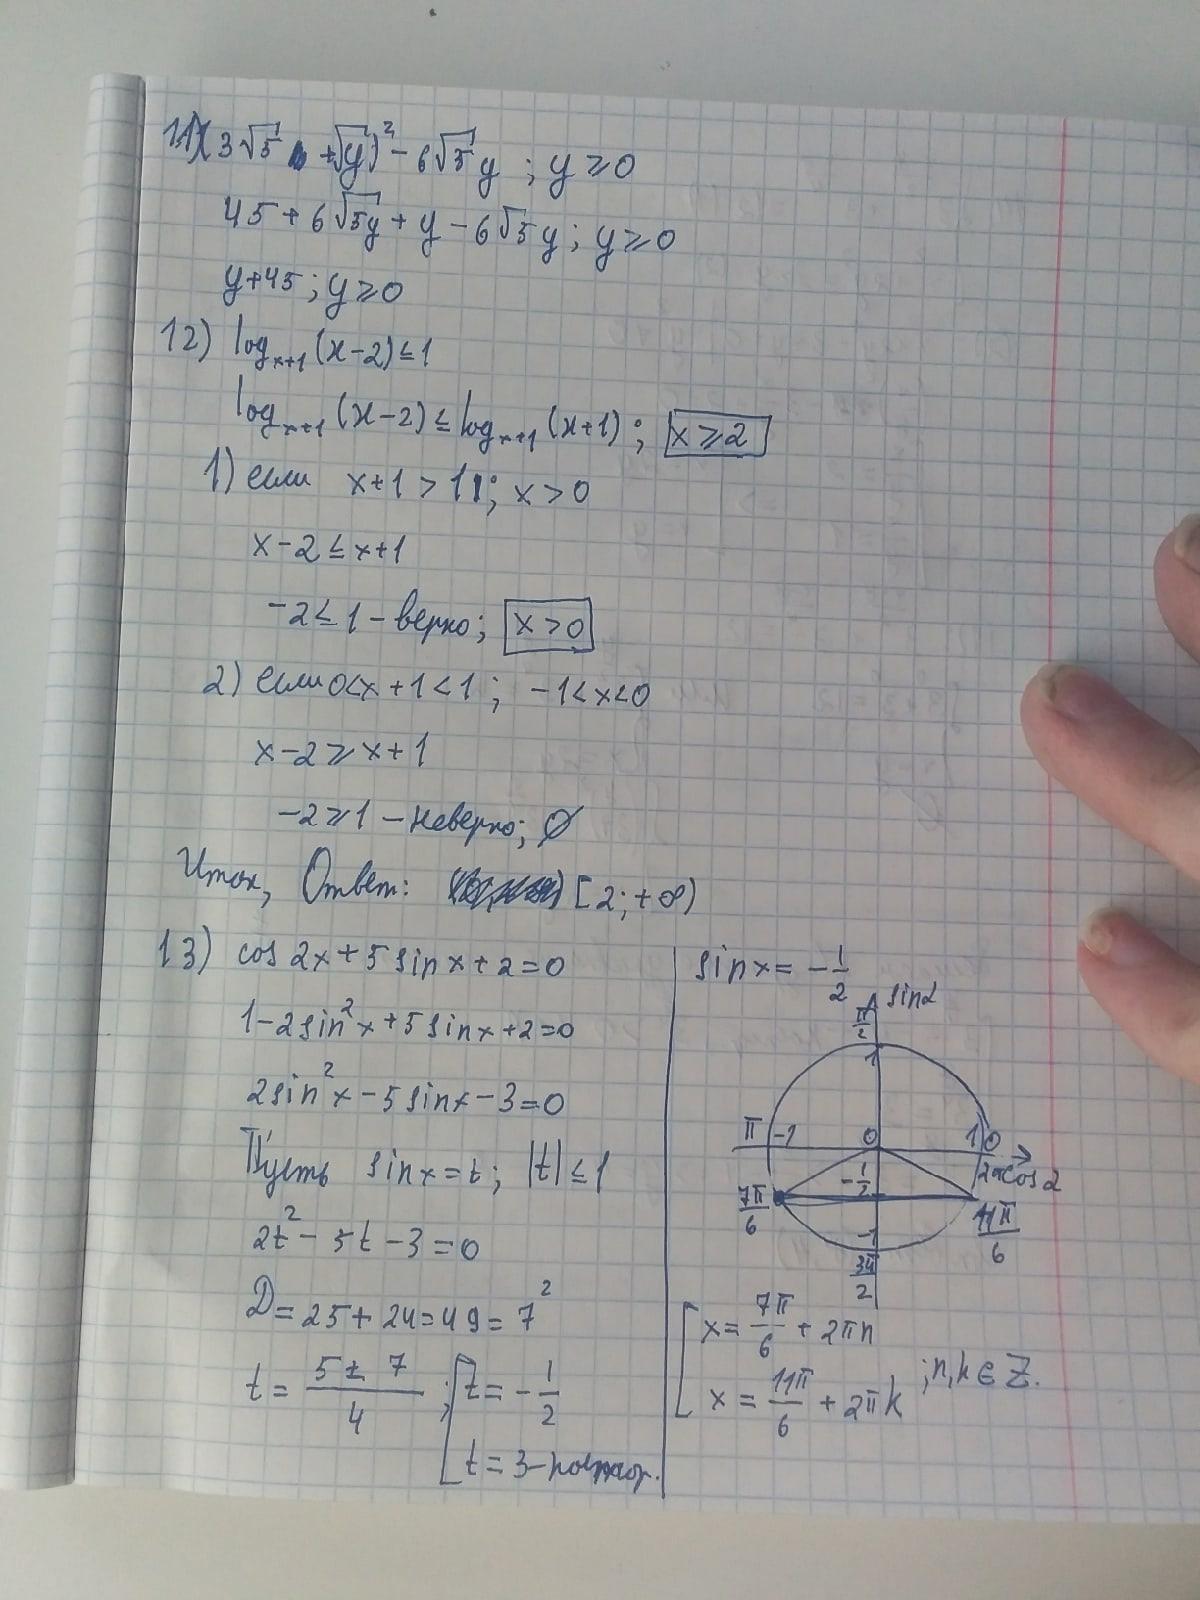 11) (3√5 + √y)² - 6√5y ; y ≥ 0
45 + 6√5y + y - 6√5y ; y ≥ 0
y + 45 ; y ≥ 0
12) log_{x+1} (x-2) ≤ 1
log_{x+1} (x-2) ≤ log_{x+1} (x+1) ; x ≥ 2
1) если x+1 > 1 ; x > 0
x-2 ≤ x+1
-2 ≤ 1 - верно; x > 0
2) если 0<x+1<1 ; -1<x<0
x-2 ≥ x+1
-2 ≥ 1 - неверно; ∅
Итак, Ответ: [2; +∞)
13) cos 2x + 5 sin x + 2 = 0
1 - 2sin²x + 5 sin x + 2 = 0
2sin²x - 5 sin x - 3 = 0
Пусть sin x = t ; |t| ≤ 1
2t² - 5t - 3 = 0
D = 25 + 24 = 49 = 7²
t = (5 ± 7)/4 ; [ t = -1/2
t = 3 -
sin x = -1/2
sin α
π/2
1
π -1 0 1 0
2π cos α
7π/6 -1/2 11π/6
-1
3π/2
[ x = 7π/6 + 2πn
x = 11π/6 + 2πk ; n, k ∈ Z.